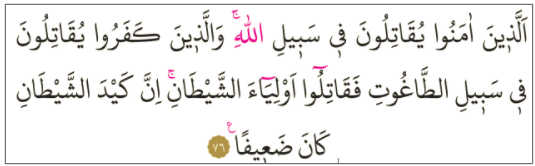 اَلَّذ۪ينَ اٰمَنُوا يُقَاتِلُونَ ف۪ي سَب۪يلِ اللّٰهِۚ وَالَّذ۪ينَ كَفَرُوا يُقَاتِلُونَ
ف۪ي سَب۪يلِ الطَّاغُوتِ فَقَاتِلُٓوا اَوْلِيَٓاءَ الشَّيْطَانِۚ اِنَّ كَيْدَ الشَّيْطَانِ
كَانَ ضَع۪يفًاۜ ﴿٧٦﴾